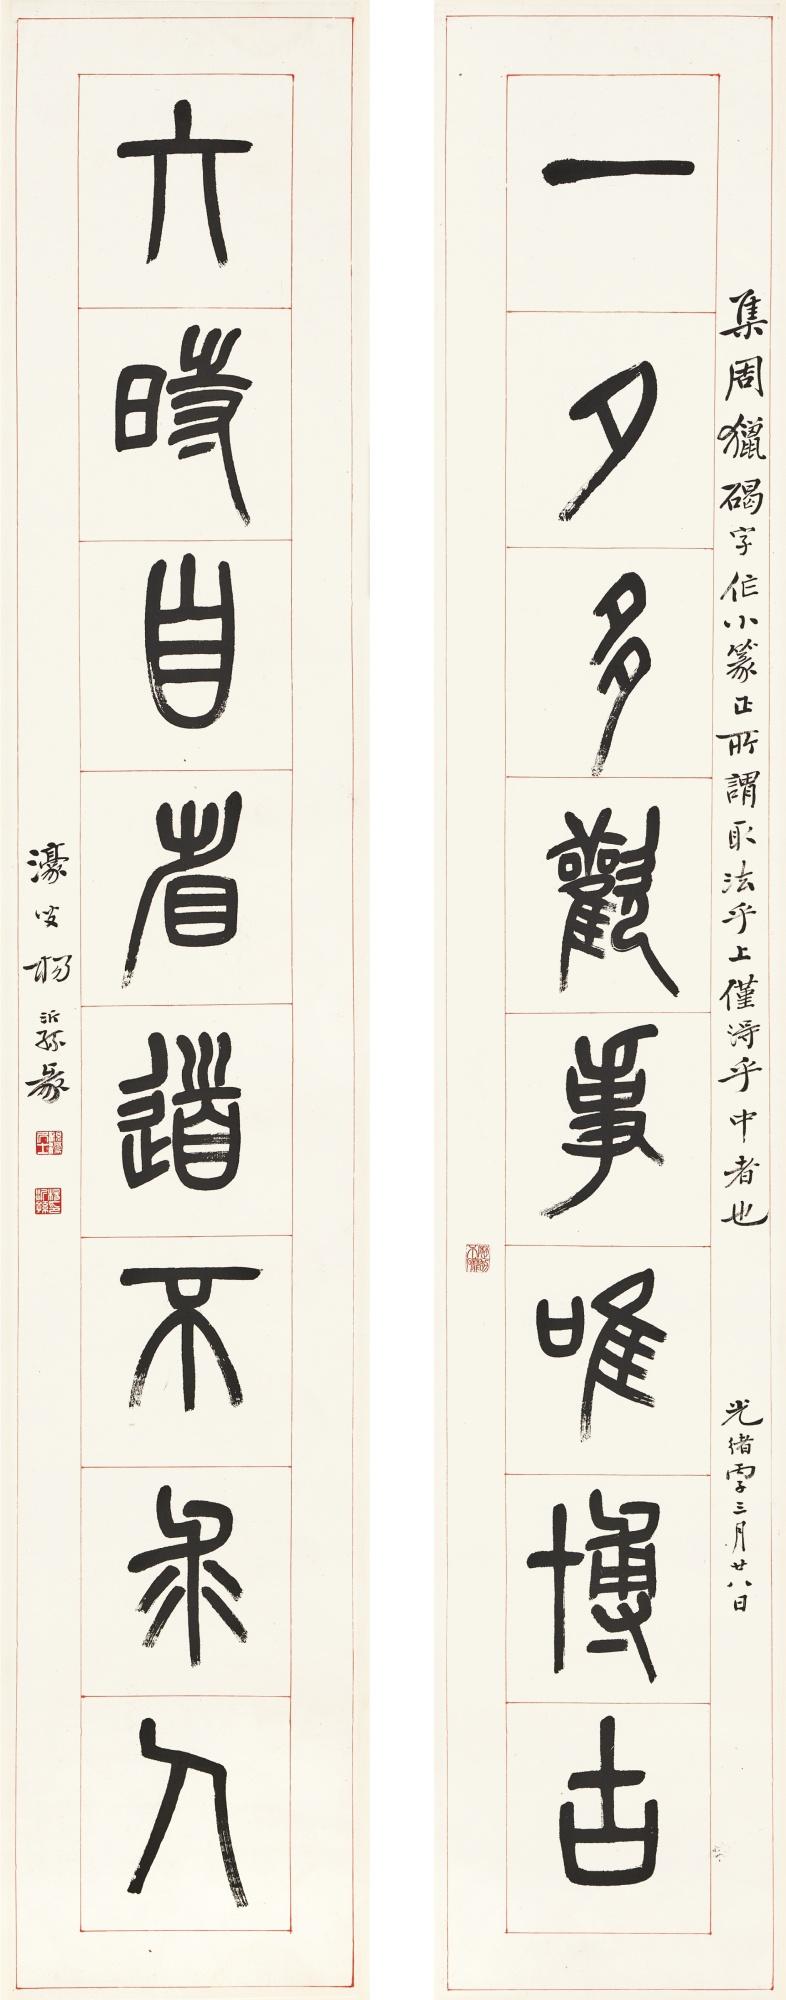 集周獵碣字作小篆正所謂取法乎上僅得乎中者也
光緒丙子三月廿八日
一夕多觀事唯博古
六時自省道不求人
濠叟楊沂孫篆